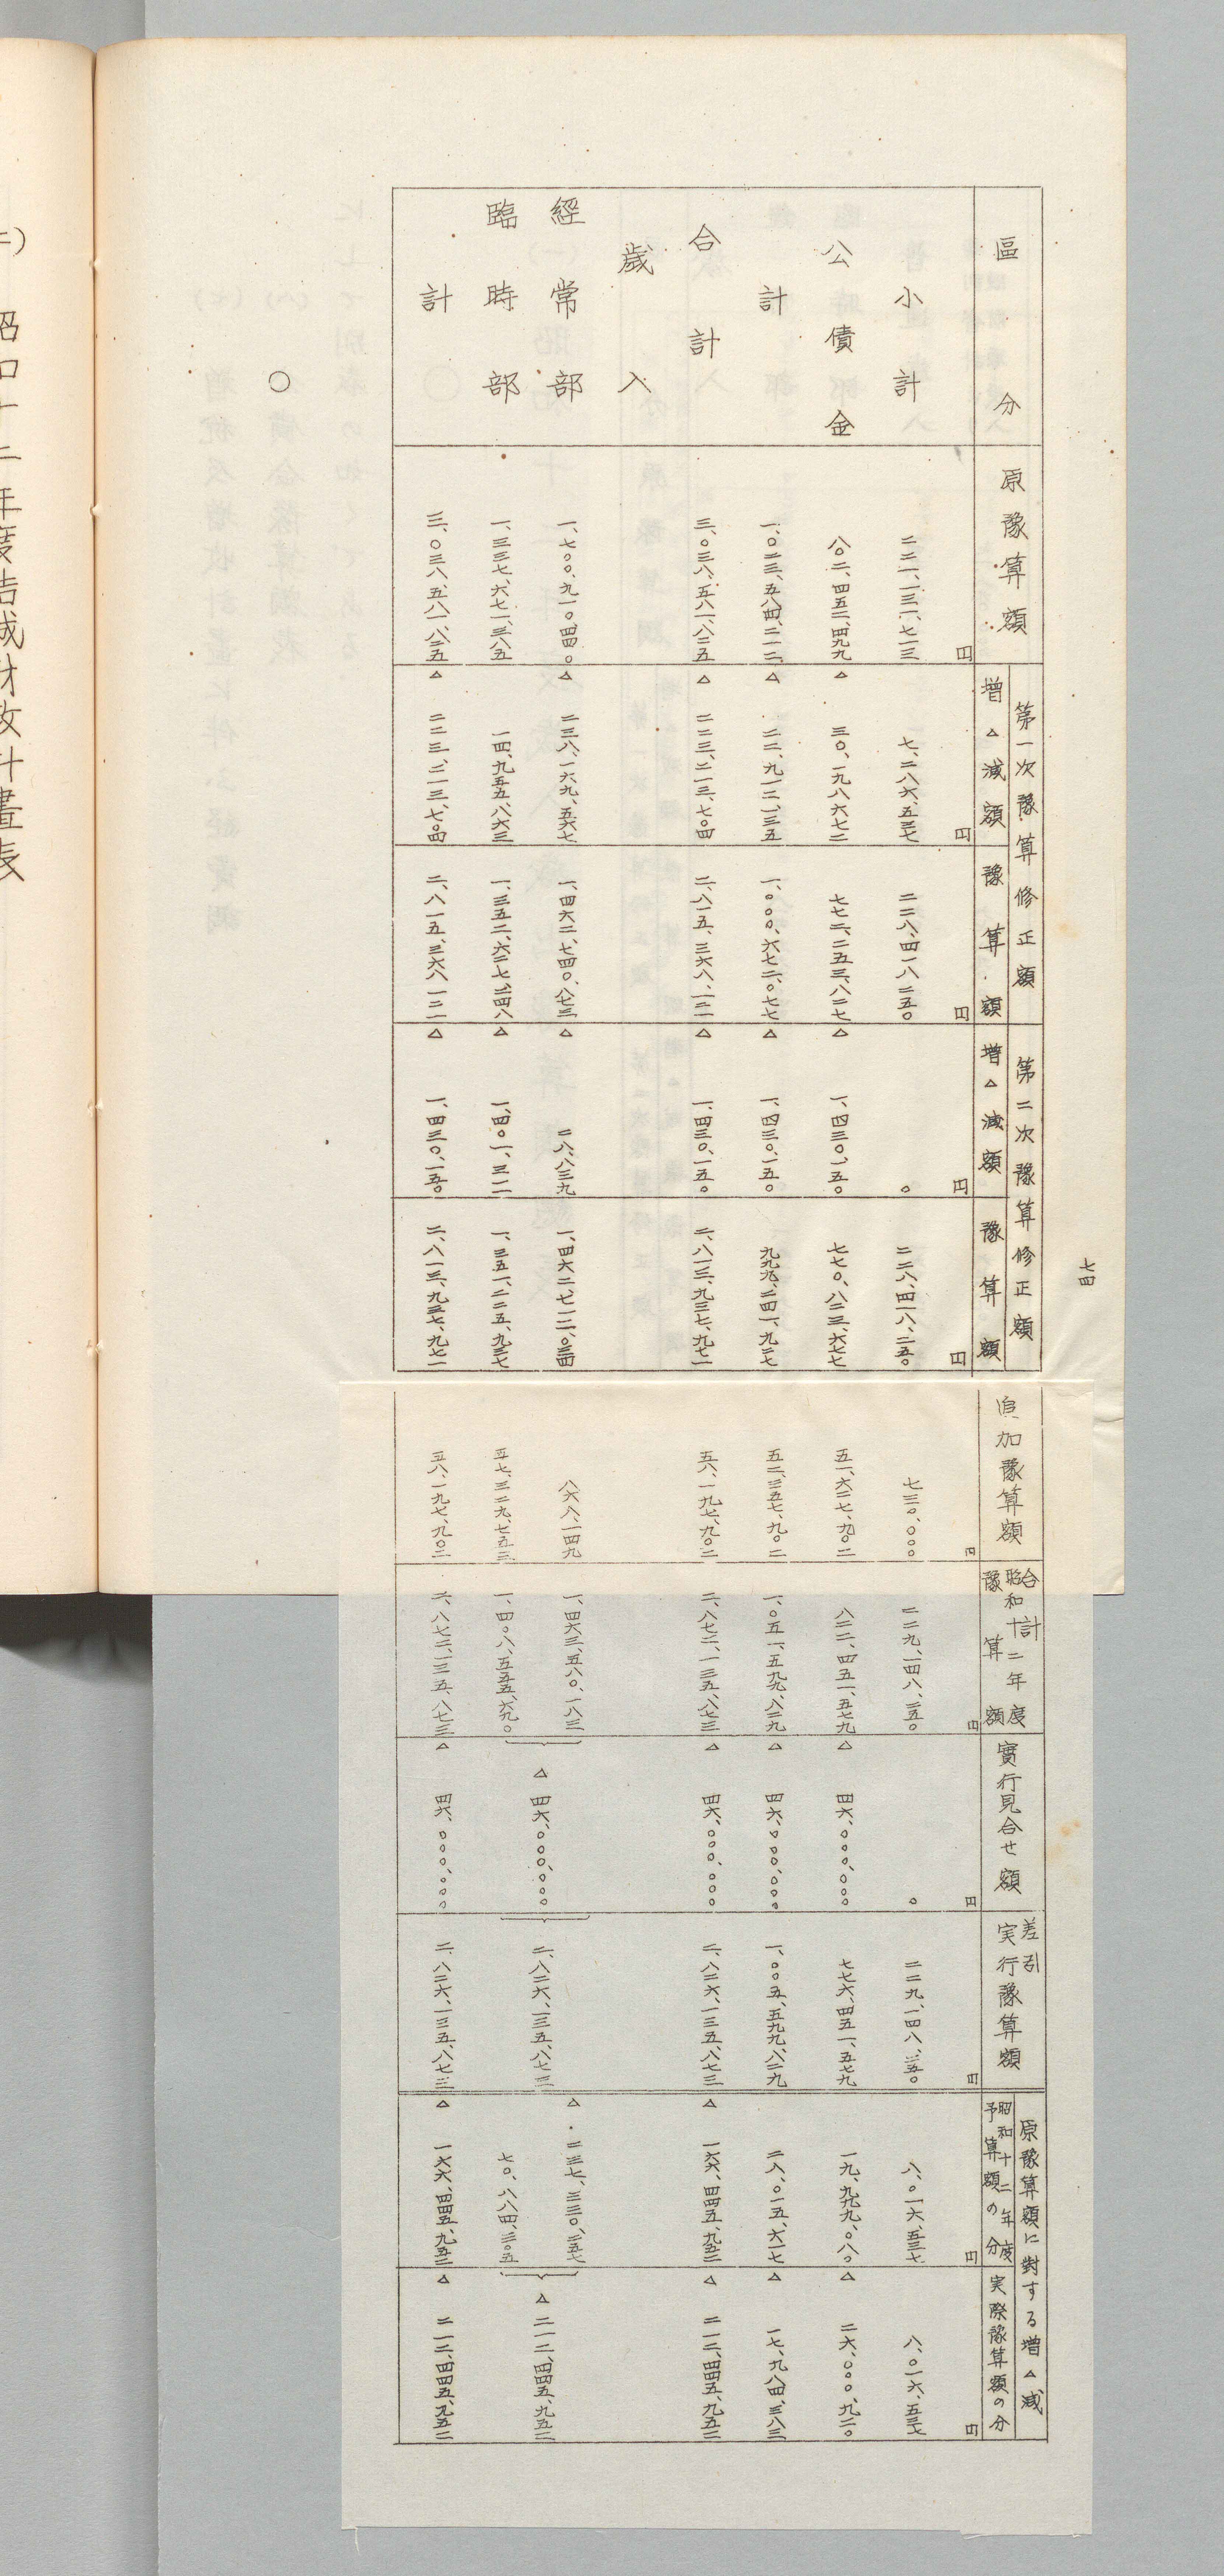 七四
區分
原豫算額
第一次豫算修正額
増△減額
豫算額
第二次豫算修正額
増△減額
豫算額
追加豫算額
合計
昭和十二年度
豫算額
實行見合せ額
差引
実行豫算額
原豫算額に對する増△減
昭和十二年度
予算額の分
実際豫算額の分
円 円 円 円 円 円 円 円 円 円 円
小計 二二一、一三一、七一三 七、二八六、五三七 二二八、四一八、二五〇 〇 二二八、四一八、二五〇 七三〇、〇〇〇 二二九、一四八、二五〇 〇 二二九、一四八、二五〇 八、〇一六、五三七 八、〇一六、五三七
公債金 八〇二、四五二、四九九 △ 三〇、一九八、六七二 七七二、二五三、八二七 △ 一、四三〇、一五〇 七七〇、八二三、六七七 五一、六二七、九〇二 八二二、四五一、五七九 △ 四六、〇〇〇、〇〇〇 七七六、四五一、五七九 一九、九九九、〇八〇 △ 二六、〇〇〇、九二〇
計 一、〇二三、五八四、二一二 △ 二二、九一二、一三五 一、〇〇〇、六七二、〇七七 △ 一、四三〇、一五〇 九九九、二四一、九二七 五二、三五七、九〇二 一、〇五一、五九九、八二九 △ 四六、〇〇〇、〇〇〇 一、〇〇五、五九九、八二九 二八、〇一五、六一七 △ 一七、九八四、三八三
合計 三、〇三八、五八一、八二五 △ 二二三、二一三、七〇四 二、八一五、三六八、一二一 △ 一、四三〇、一五〇 二、八一三、九三七、九七一 五八、一九七、九〇二 二、八七二、一三五、八七三 △ 四六、〇〇〇、〇〇〇 二、八二六、一三五、八七三 △ 一六六、四四五、九五二 △ 二一二、四四五、九五二
歳入
經常部 一、七〇〇、九一〇、四四〇 △ 二三八、一六九、五六七 一、四六二、七四〇、八七三 △ 二八、八三九 一、四六二、七一二、〇三四 八六八、一四九 一、四六三、五八〇、一八三 △ 二三七、三三〇、二五七
△ 四六、〇〇〇、〇〇〇 二、八二六、一三五、八七三 △ 二一二、四四五、九五二
臨時部 一、三三七、六七一、三八五 一四、九五五、八六三 一、三五二、六二七、二四八 △ 一、四〇一、三一一 一、三五一、二二五、九三七 五七、三二九、七五三 一、四〇八、五五五、六九〇 七〇、八八四、三〇五
計 三、〇三八、五八一、八二五 △ 二二三、二一三、七〇四 二、八一五、三六八、一二一 △ 一、四三〇、一五〇 二、八一三、九三七、九七一 五八、一九七、九〇二 二、八七二、一三五、八七三 △ 四六、〇〇〇、〇〇〇 二、八二六、一三五、八七三 △ 一六六、四四五、九五二 △ 二一二、四四五、九五二
〇
昭和十二年度結成財政計畫表